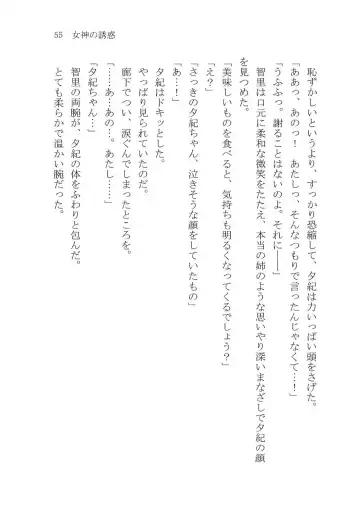 55　女神の誘惑
　恥ずかしいというより、すっかり恐縮して、夕紀は力いっぱい頭をさげた。
「ああっ、あのっ！　あたしっ、そんなつもりで言ったんじゃなくて…！」
「うふふっ。謝ることはないのよ。それに――」
　智里は口元に柔和な微笑をたたえ、本当の姉のような思いやり深いまなざしで夕紀の顔
を見つめた。
「美味しいものを食べると、気持ちも明るくなってくるでしょう？」
「え？」
「さっきの夕紀ちゃん、泣きそうな顔をしていたもの」
「あ…！」
　夕紀はドキッとした。
　やっぱり見られていたのだ。
　廊下でつい、涙ぐんでしまったところを。
「……あ、あの…。あたし……」
「夕紀ちゃん…」
　智里の両腕が、夕紀の体をふわりと包んだ。
　とても柔らかで温かい腕だった。